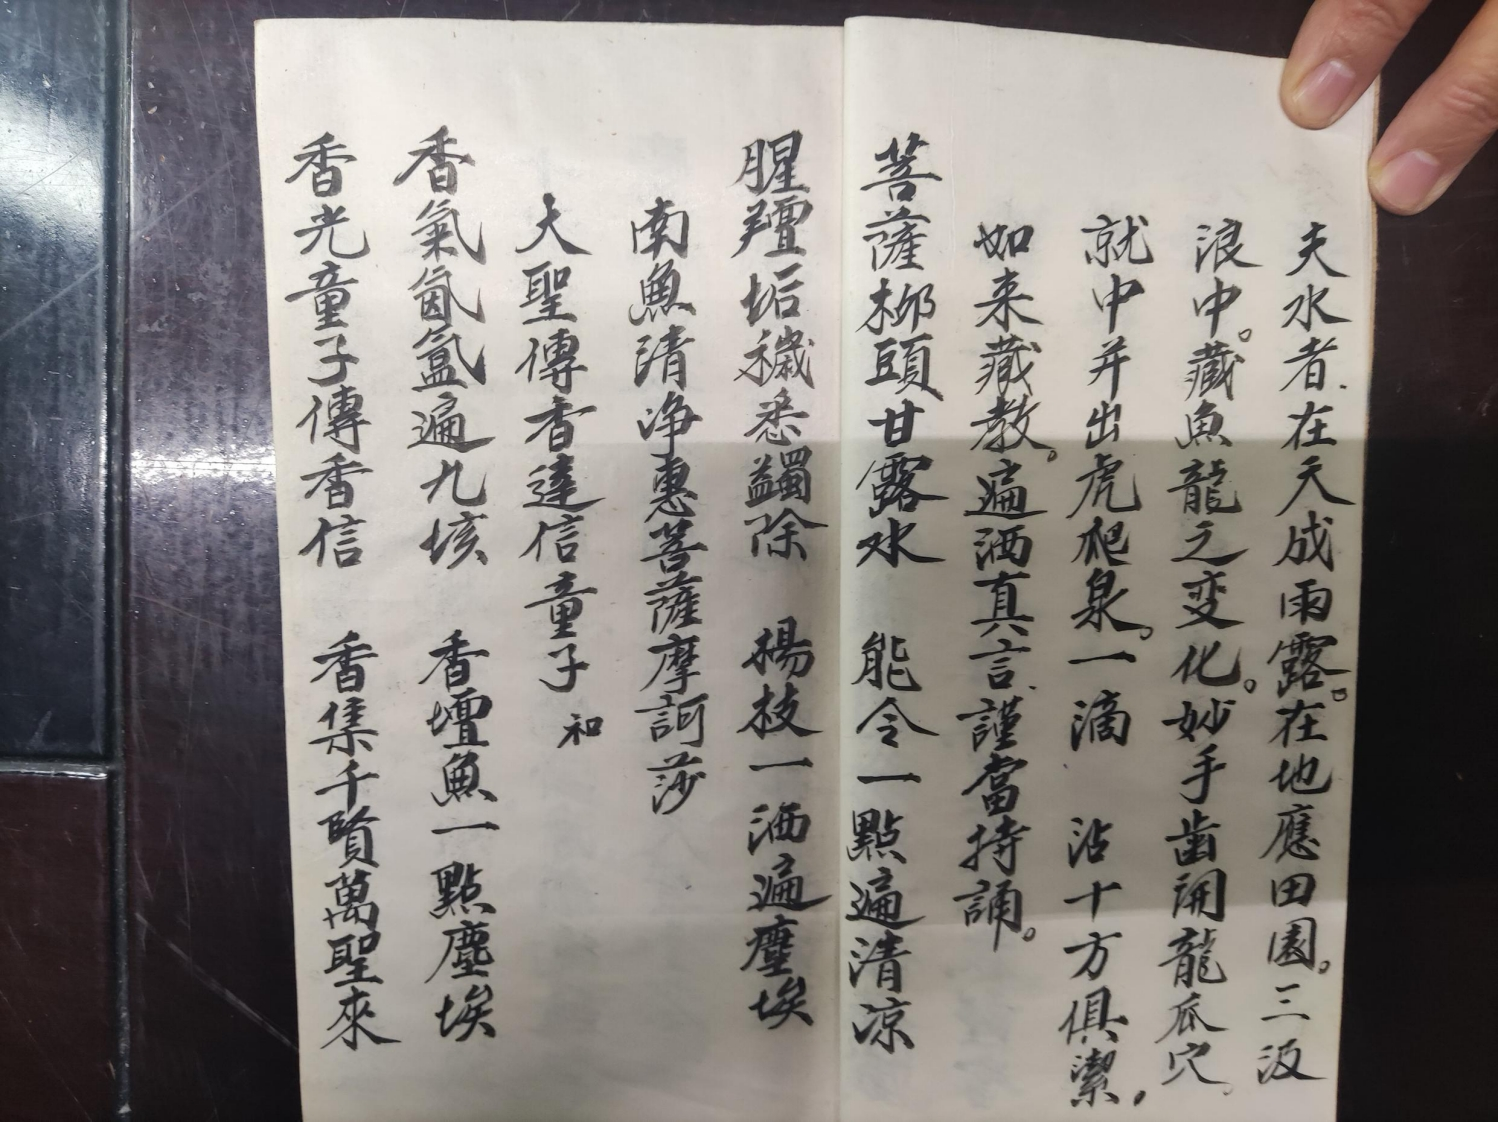 夫水者.在天成雨露。在地應田園。三汲
浪中。藏魚龍之变化。妙手凿開龍瓜穴。
就中并出虎爬泉。一滴 沾十方俱潔,
如来藏教。遍洒真言.謹當持誦。
菩薩柳頭甘露水 能令一點遍清凉
腥羶垢穢悉蠲除 楊枝一洒遍塵埃
南無清净惠菩薩摩訶莎
大聖傳香達信童子 和
香氣氤氳遍九垓 香壇無一點塵埃
香光童子傳香信 香集千賢萬聖來